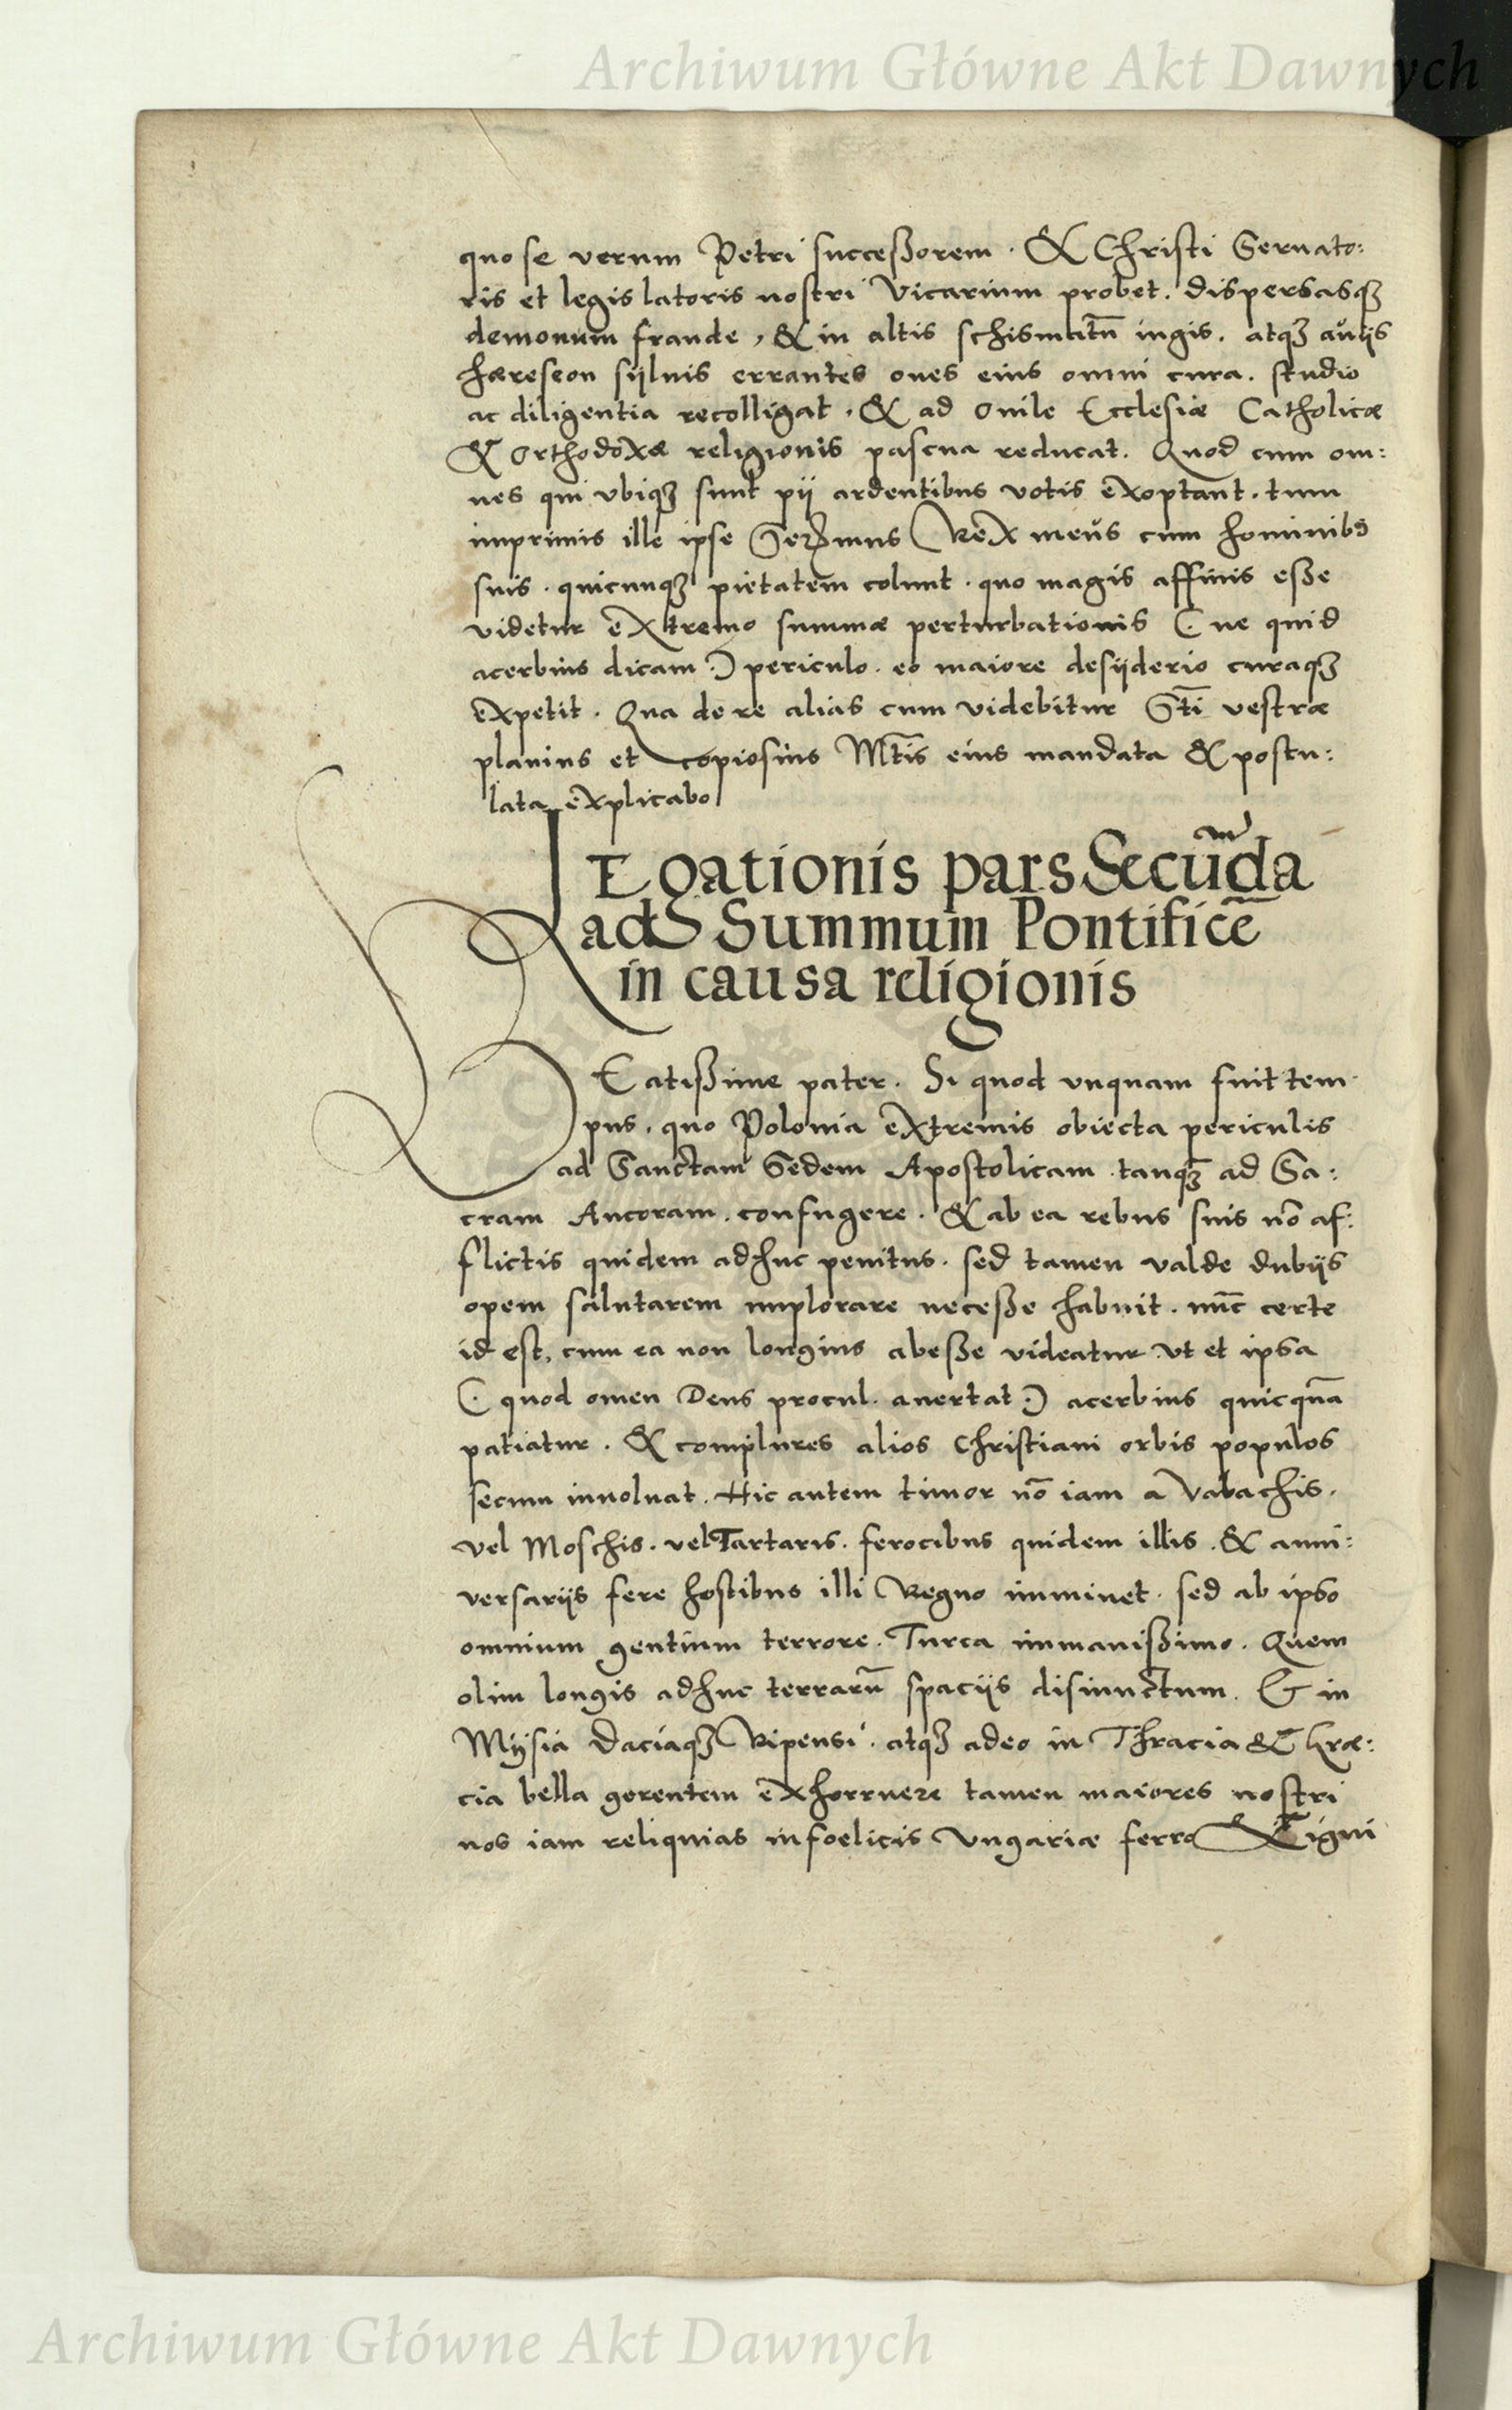 Archiwum Główne Akt Dawnych
quo se verum Petri successorem. & Christi Seruato:
ris et legis latoris nostri Vicarium probet. dispersasqꝫ
demonum fraude, & in altis schismatū iugis. atqꝫ auijs
hæreseon sijluis errantes oues eius omni cura. studio
ac diligentia recolligat, & ad Ouile Ecclesiæ Catholicæ
& Orthodoxæ religionis pascua reducat. Quod cum om:
nes qui vbiqꝫ sunt pij ardentibus votis exoptant. tum
imprimis ille ipse Serᵐmus Rex meus cum hominibꝰ
suis. quicunqꝫ pietatem colunt. quo magis affinis eße
videtur extremo summæ perturbationis (. ne quid
acerbius dicam .) periculo. eo maiore desijderio curaqꝫ
expetit. Qua de re alias cum videbitur Sti͞ vestræ
planius et copiosius Mt͞is eius mandata & postu:
lata explicabo
LEgationis pars Secūda
ad Summum Pontificē
in causa religionis
BEatißime pater. Si quod vnquam fuit tem
pus. quo Polonia extremis obiecta periculis
ad Sanctam Sedem Apostolicam. tanqꝫ ad Sa:
cram Ancoram. confugere. & ab ea rebus suis nō af:
flictis quidem adhuc penitus. sed tamen valde dubijs
opem salutarem implorare neceße habuit. nūc certe
id est, cum ea non longius abeße videatur vt et ipsa
(. quod omen Deus procul auertat .) acerbius quicquā
patiatur. & complures alios Christiani orbis populos
secum inuoluat. Hic autem timor nō iam a Valachis.
vel Moschis. vel Tartaris. ferocibus quidem illis. & anni:
versarijs fere hostibus illi Regno imminet. sed ab ipso
omnium gentium terrore. Turca immanißimo. Quem
olim longis adhuc terrarū spacijs disiunctum. Et in
Mysia Daciaqꝫ Ripensi. atqꝫ adeo in Thracia & Græ:
cia bella gerentem exhorruere tamen maiores nostri
nos iam reliquias infoelicis Vngariæ ferro & igni
Archiwum Główne Akt Dawnych